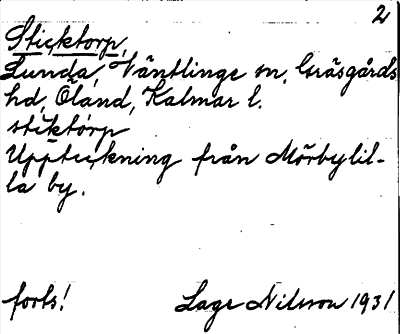 2
Sticktorp,
Lunda, Väntlinge sn, Gräsgårds
hd, Öland, Kalmar l.
stiktorp
Uppteckning från Mörbylil-
la by.
forts!
Lage Nilsson 1931